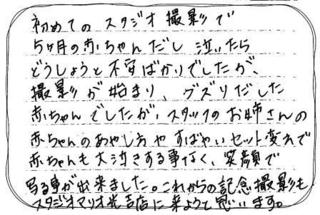 初めてのスタジオ撮影で
5ヶ月の赤ちゃんだし泣いたら
どうしようと不安ばかりでしたが、
撮影が始まり、グズりだした
赤ちゃんでしたが、スタッフのお姉さんの
赤ちゃんのあやし方やすばやいセット変えで
赤ちゃんも大泣きする事なく、笑顔で
写る事が出来ました。これからの記念撮影も
スタジオマリオ光吉店に来ようと思います。